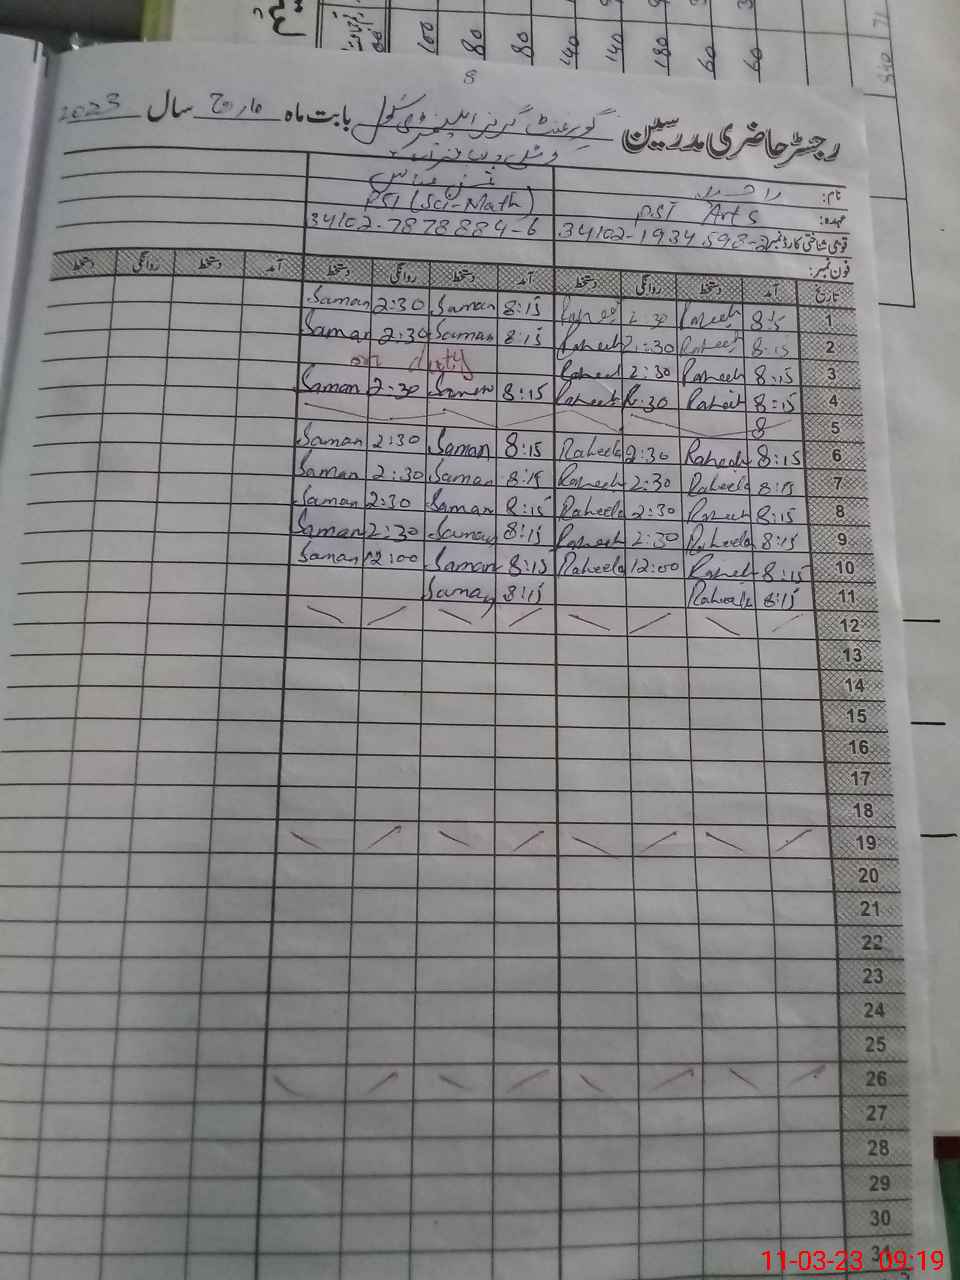 100 80 80 140 140 180 60 60 840 71
8
رجسٹر حاضری مدرسین گورنمنٹ گرلز ایلیمنٹری سکول بابت ماہ مارچ سال 2023
نام:
عہدہ: PST Arts PST (Sci-Math)
قومی شناختی کارڈ نمبر 34102-1934598-2 34102-7878884-6
فون نمبر:
تاریخ آمد دستخط روانگی دستخط آمد دستخط روانگی دستخط آمد دستخط روانگی دستخط
1 8:15 Raheela 2:30 Raheela 8:15 Saman 2:30 Saman
2 8:15 Raheela 2:30 Raheela 8:15 Saman 2:30 Saman
3 8:15 Raheela 2:30 Raheela on duty
4 8:15 Raheela 2:30 Raheela 8:15 Saman 2:30 Saman
5 8
6 8:15 Raheela 2:30 Raheela 8:15 Saman 2:30 Saman
7 8:15 Raheela 2:30 Raheela 8:15 Saman 2:30 Saman
8 8:15 Raheela 2:30 Raheela 8:15 Saman 2:30 Saman
9 8:15 Raheela 2:30 Raheela 8:15 Saman 2:30 Saman
10 8:15 Raheela 12:00 Raheela 8:15 Saman 12:00 Saman
11 8:15 Raheela 8:15 Saman
12
13
14
15
16
17
18
19
20
21
22
23
24
25
26
27
28
29
30
31
11-03-23 09:19